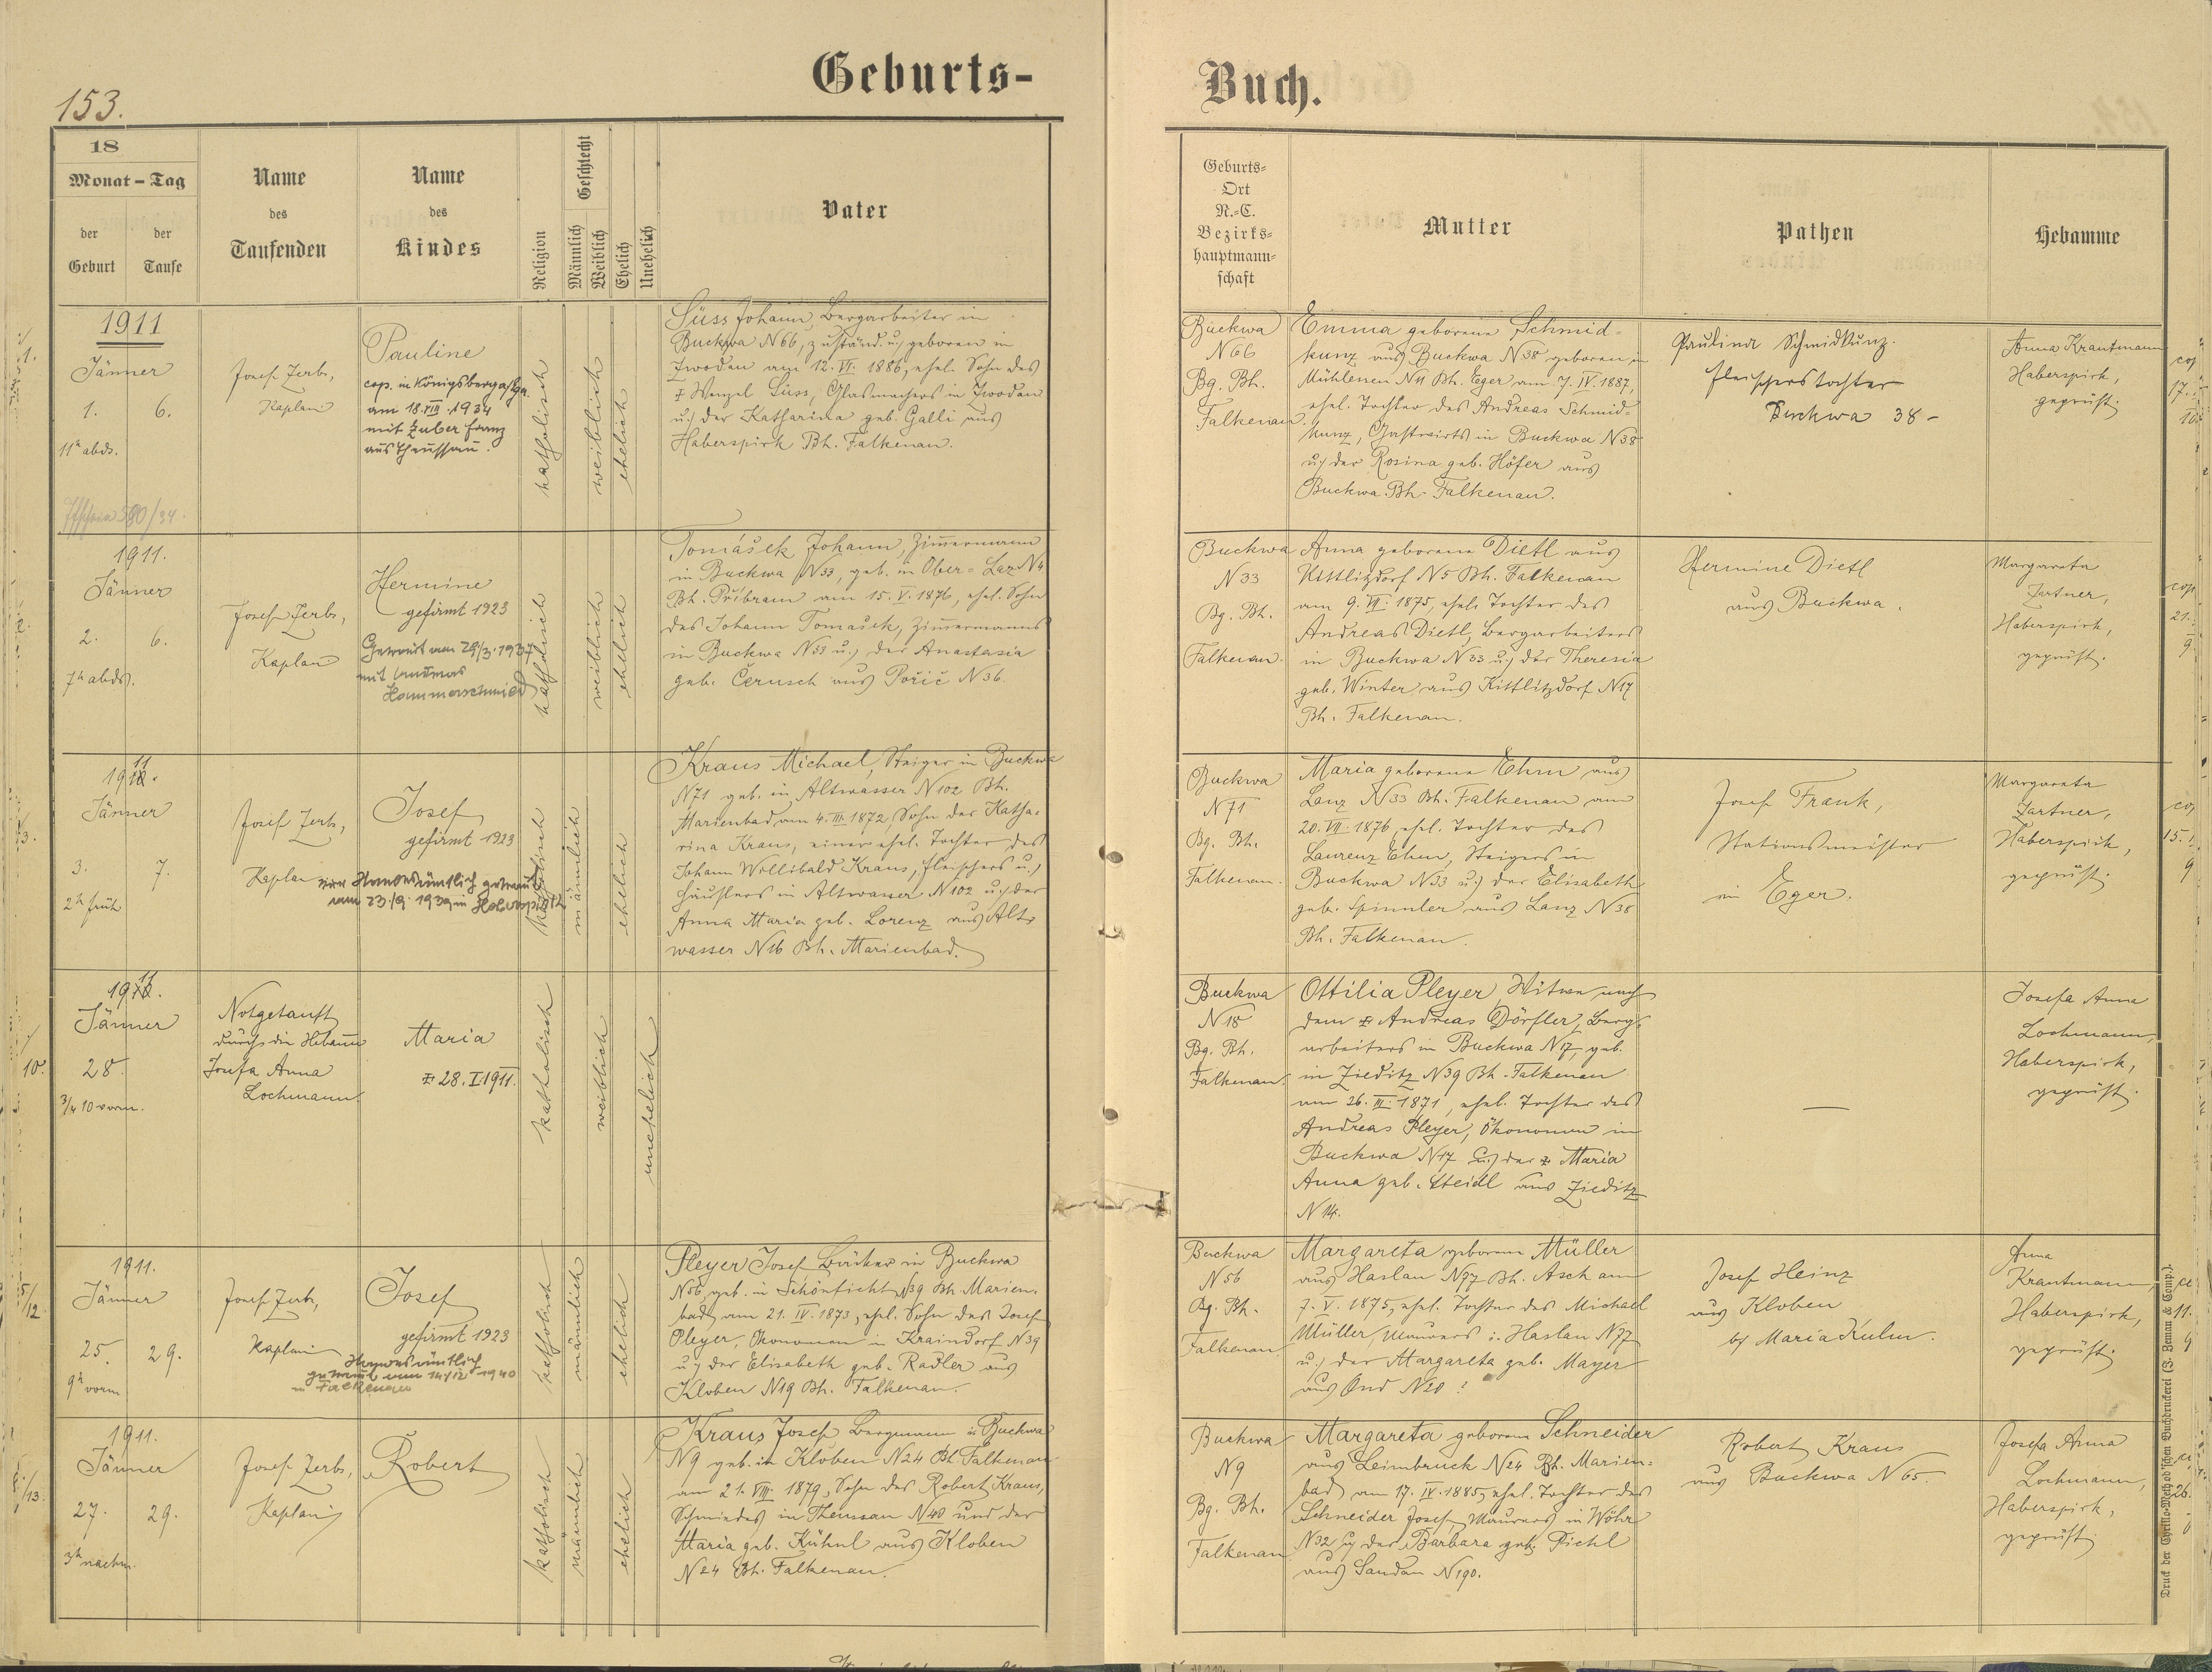 153.
Geburts-
Buch.
18
Monat - Tag
der Geburt
der Taufe
Name des Taufenden
Name des Kindes
Religion
Geschlecht
Männlich
Weiblich
Ehelich
Unehelich
Vater
Geburts-
Ort
N.-C.
Bezirks-
hauptmann-
schaft
Mutter
Pathen
Hebamme
1911
Jänner
1. 6.
11h abds.
Josef Zerb,
Kaplan
Pauline
cop. in Königsberg a/Eg.
am 18.VIII.1934
mit Zuber Franz
aus Theussau.
katholisch
weiblich
ehelich
Süss Johann, Bergarbeiter in
Buckwa N66, zuständ. u. geboren in
Zwodau am 12.VI.1886, ehel. Sohn des
Wenzel Süss, Glasmachers in Zwodau
u. der Katharina geb. Galli aus
Haberspirk Bh. Falkenau.
Buckwa
N66
Bg. Bh.
Falkenau.
Emma geborene Schmid-
kunz aus Buckwa N38 geboren in
Mühlessen N11 Bh. Eger am 7.IV.1887,
ehel. Tochter des Andreas Schmid-
kunz, Gastwirts in Buckwa N38
u. der Rosina geb. Höfer aus
Buckwa Bh. Falkenau.
Paulina Schmidkunz.
Fleischerstochter
Buckwa 38-
Anna Krautmann
Haberspirk,
geprüft.
1911.
Jänner
2. 6.
7h abds.
Josef Zerb,
Kaplan
Hermine
gefirmt 1923
Getraut am 29/3.1937
mit
Hammerschmied
katholisch
weiblich
ehelich
Tomášek Johann, Zimmermann
in Buckwa N33, geb. in Ober-Laz N4
Bh. Přibram am 15.V.1876, ehel. Sohn
des Johann Tomášek, Zimmermanns
in Buckwa N33 u. der Anastasia
geb. Čerusch aus Pořič N36.
Buckwa
N33
Bg. Bh.
Falkenau.
Anna geborene Dietl aus
Kittlitzdorf N5 Bh. Falkenau
am 9.VI.1875, ehel. Tochter des
Andreas Dietl, Bergarbeiters
in Buckwa N33 u. der Theresia
geb. Winter aus Kittlitzdorf N17
Bh. Falkenau.
Hermine Dietl
aus Buckwa.
Margareta
Zartner,
Haberspirk,
geprüft.
1911.
Jänner
3. 7.
2h früh
Josef Zerb,
Kaplan
Josef
gefirmt 1923
standesämtlich getraut
am 23./9. 1939 in Haberspirk
katholisch
männlich
ehelich
Kraus Michael, Steiger in Buckwa
N71 geb. in Altwasser N102 Bh.
Marienbad am 4.III.1872, Sohn der Katha-
rina Kraus, einer ehel. Tochter des
Johann Wollibald Kraus, Fleischers u.
Häuslers in Altwasser N102 u. der
Anna Maria geb. Lorenz aus Alt-
wasser N16 Bh. Marienbad.
Buckwa
N71
Bg. Bh.
Falkenau.
Maria geborene Ehm aus
Lanz N33 Bh. Falkenau am
20.VII.1876, ehel. Tochter des
Laurenz Ehm, Steigers in
Buckwa N33 u. der Elisabeth
geb. Spinnler aus Lanz N38
Bh. Falkenau.
Josef Frank,
Stationsmeister
in Eger.
Margareta
Zartner,
Haberspirk,
geprüft.
1911.
Jänner
28.
3/4 10 vorm.
Notgetauft
durch die Hebamme
Josefa Anna
Lochmann.
Maria
28.I.1911.
katholisch
weiblich
unehelich
Buckwa
N18
Bg. Bh.
Falkenau.
Ottilia Pleyer, Witwe nach
dem Andreas Dörfler, Berg-
arbeiters in Buckwa N17, geb.
in Zieditz N39 Bh. Falkenau
am 26.III.1871, ehel. Tochter des
Andreas Pleyer, Ökonomen in
Buckwa N17 u. der Maria
Anna geb. Steidl aus Zieditz
N14.
Josefa Anna
Lochmann,
Haberspirk,
geprüft.
1911.
Jänner
25. 29.
9h vorm.
Josef Zerb,
Kaplan
Josef
gefirmt 1923
Standesämtlich
getraut am 14/12 1940
in Falkenau
katholisch
männlich
ehelich
Pleyer Josef, Bäcker in Buckwa
N56, geb. in Schönficht N39 Bh. Marien-
bad am 21.IV.1873, ehel. Sohn des Josef
Pleyer, Ökonomen in Kraindorf N39
u. der Elisabeth geb. Radler aus
Kloben N19 Bh. Falkenau.
Buckwa
N56
Bg. Bh.
Falkenau
Margareta geborene Müller
aus Haslau N97 Bh. Asch am
7.V.1875, ehel. Tochter des Michael
Müller, Maurers i. Haslau N77
u. der Margareta geb. Mayer
aus N20 ?
Josef Heinz
aus Kloben
by Maria Kulm.
Anna
Krautmann,
Haberspirk,
geprüft.
1911.
Jänner
27. 29.
3h nachm.
Josef Zerb,
Kaplan
Robert
katholisch
männlich
ehelich
Kraus Josef, Bergmann in Buckwa
N9 geb. in Kloben N24 Bh. Falkenau
am 21.VIII.1879, Sohn des Robert Kraus,
Schmiedes in Theussau N40 und der
Maria geb. Kühnl aus Kloben
N24 Bh. Falkenau.
Buckwa
N9
Bg. Bh.
Falkenau
Margareta geborene Schneider
aus Leimbruck N24 Bh. Marien-
bad am 17.IV.1885, ehel. Tochter des
Schneider Josef, Maurers in Wöhr
N32 u. der Barbara geb. Pichl
aus Sandau N190.
Robert Kraus
aus Buckwa N65.
Josefa Anna
Lochmann,
Haberspirk,
geprüft.
Druck der Cyrillo-Method'schen Buchdruckerei (J. Zeman & Comp.).